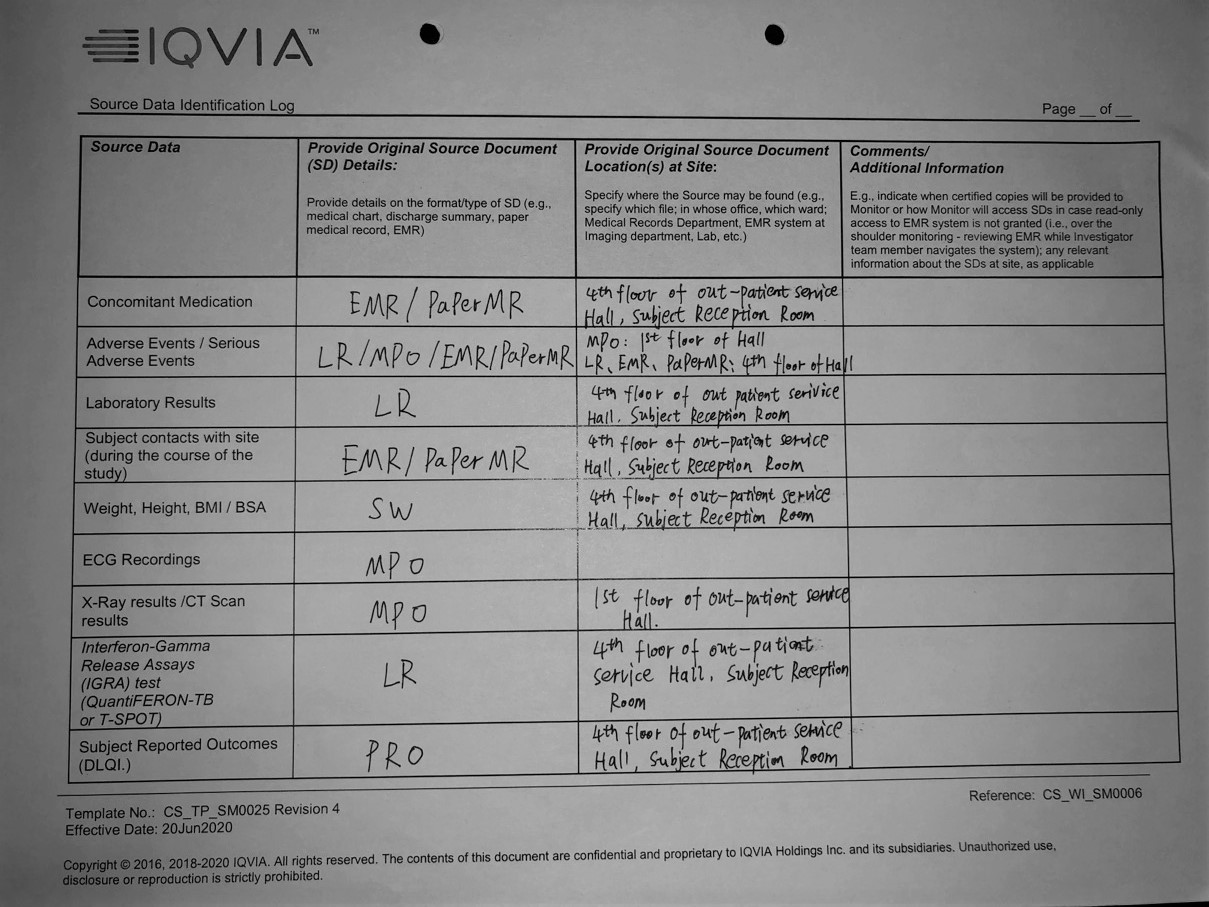 IQVIA™
Source Data Identification Log
Page __ of __
Source Data
Provide Original Source Document
(SD) Details:
Provide details on the format/type of SD (e.g.,
medical chart, discharge summary, paper
medical record, EMR)
Provide Original Source Document
Location(s) at Site:
Specify where the Source may be found (e.g.,
specify which file; in whose office, which ward;
Medical Records Department, EMR system at
Imaging department, Lab, etc.)
Comments/
Additional Information
E.g., indicate when certified copies will be provided to
Monitor or how Monitor will access SDs in case read-only
access to EMR system is not granted (i.e., over the
shoulder monitoring - reviewing EMR while Investigator
team member navigates the system); any relevant
information about the SDs at site, as applicable
Concomitant Medication
EMR / PaperMR
4th floor of out-patient service
Hall, Subject Reception Room
Adverse Events / Serious
Adverse Events
LR/MPO/EMR/PaperMR
MPO: 1st floor of Hall
LR、EMR、PaperMR: 4th floor of Hall
Laboratory Results
LR
4th floor of out patient serivice
Hall, Subject Reception Room
Subject contacts with site
(during the course of the
study)
EMR/PaperMR
4th floor of out-patient service
Hall, Subject Reception Room
Weight, Height, BMI / BSA
SW
4th floor of out-patient service
Hall, Subject Reception Room
ECG Recordings
MPO
X-Ray results /CT Scan
results
MPO
1st floor of out-patient service
Hall.
Interferon-Gamma
Release Assays
(IGRA) test
(QuantiFERON-TB
or T-SPOT)
LR
4th floor of out-patient
service Hall, Subject Reception
Room
Subject Reported Outcomes
(DLQI.)
PRO
4th floor of out-patient service
Hall, Subject Reception Room
Template No.: CS_TP_SM0025 Revision 4
Effective Date: 20Jun2020
Reference: CS_WI_SM0006
Copyright © 2016, 2018-2020 IQVIA. All rights reserved. The contents of this document are confidential and proprietary to IQVIA Holdings Inc. and its subsidiaries. Unauthorized use,
disclosure or reproduction is strictly prohibited.